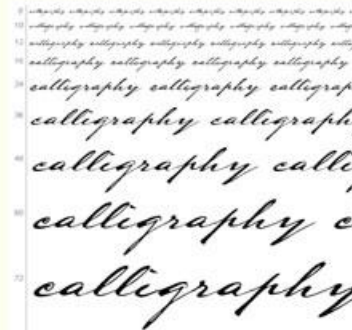 8 calligraphy calligraphy calligraphy calligraphy calligraphy calligraphy calligraphy
10 calligraphy calligraphy calligraphy calligraphy calligraphy calligraphy
12 calligraphy calligraphy calligraphy calligraphy calligraphy
16 calligraphy calligraphy calligraphy calligraphy
24 calligraphy calligraphy calligrap
36 calligraphy calligraph
48 calligraphy calli
60 calligraphy c
72 calligraphy